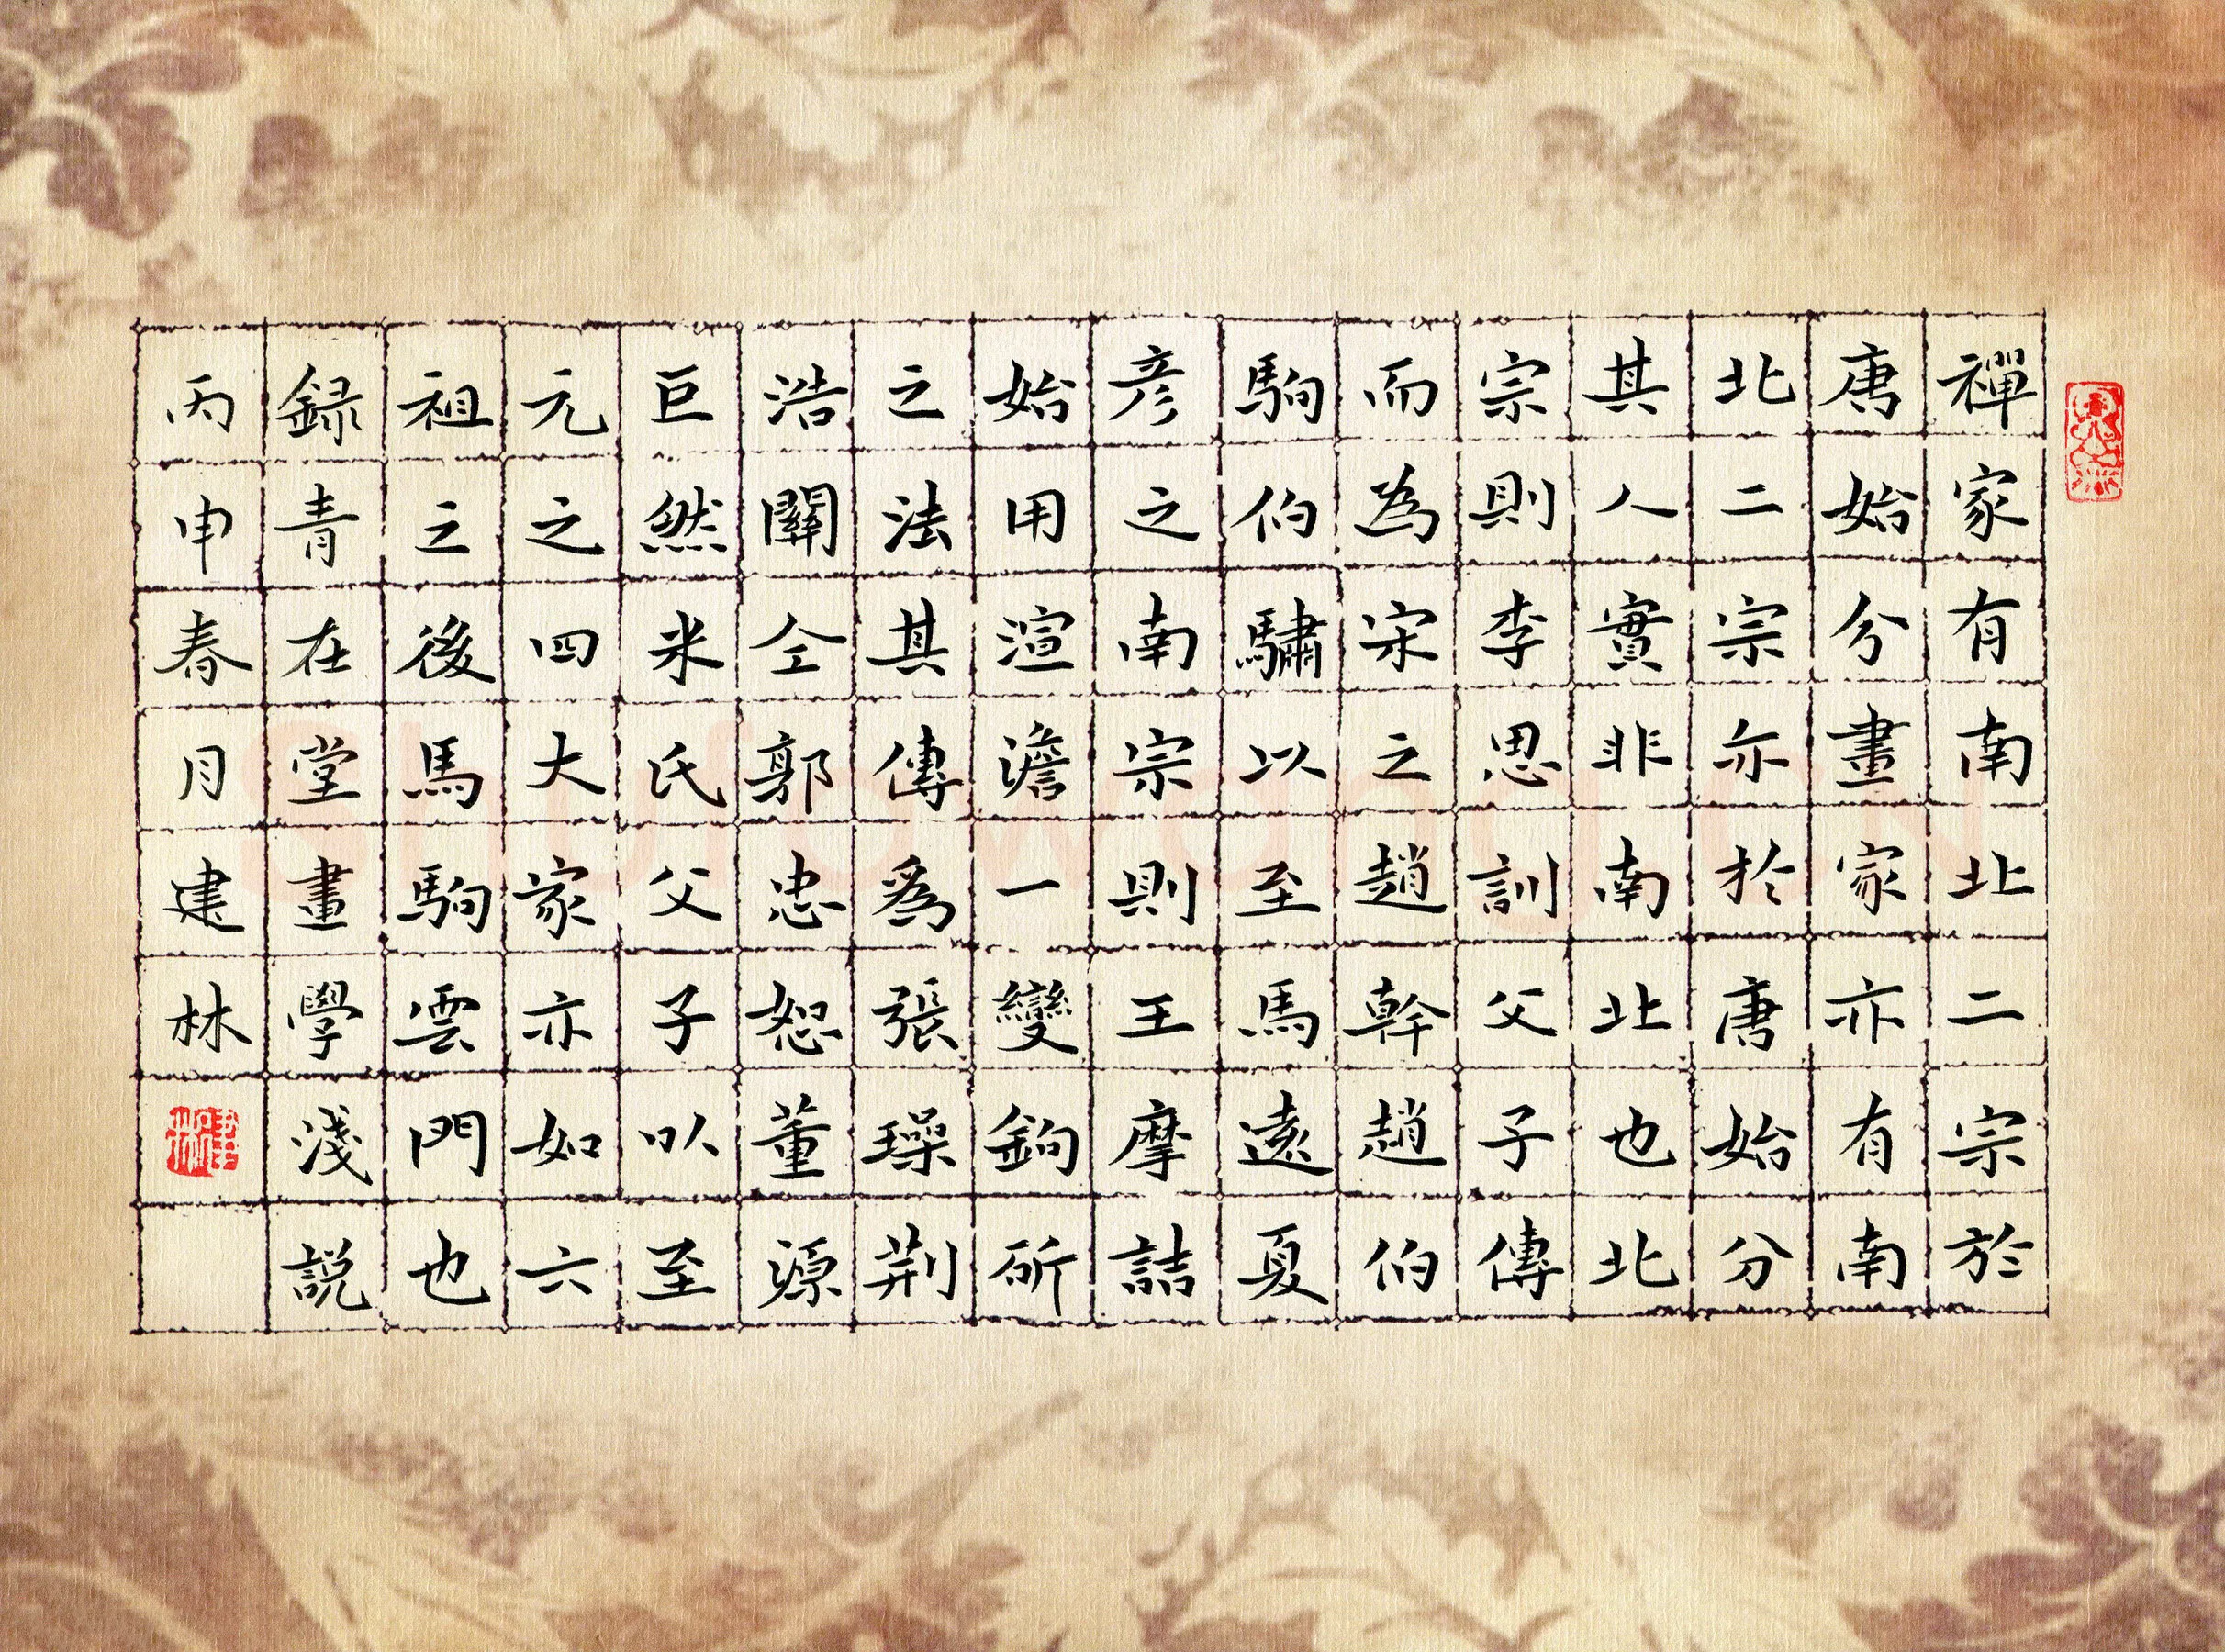 禪家有南北二宗於
唐始分畫家亦有南
北二宗亦於唐始分
其人實非南北也北
宗則李思訓父子傳
而為宋之趙幹趙伯
駒伯驌以至馬遠夏
彦之南宗則王摩詰
始用渲澹一變鉤斫
之法其傳爲張璪荆
浩關仝郭忠恕董源
巨然米氏父子以至
元之四大家亦如六
祖之後馬駒雲門也
録青在堂畫學淺説
丙申春月建林